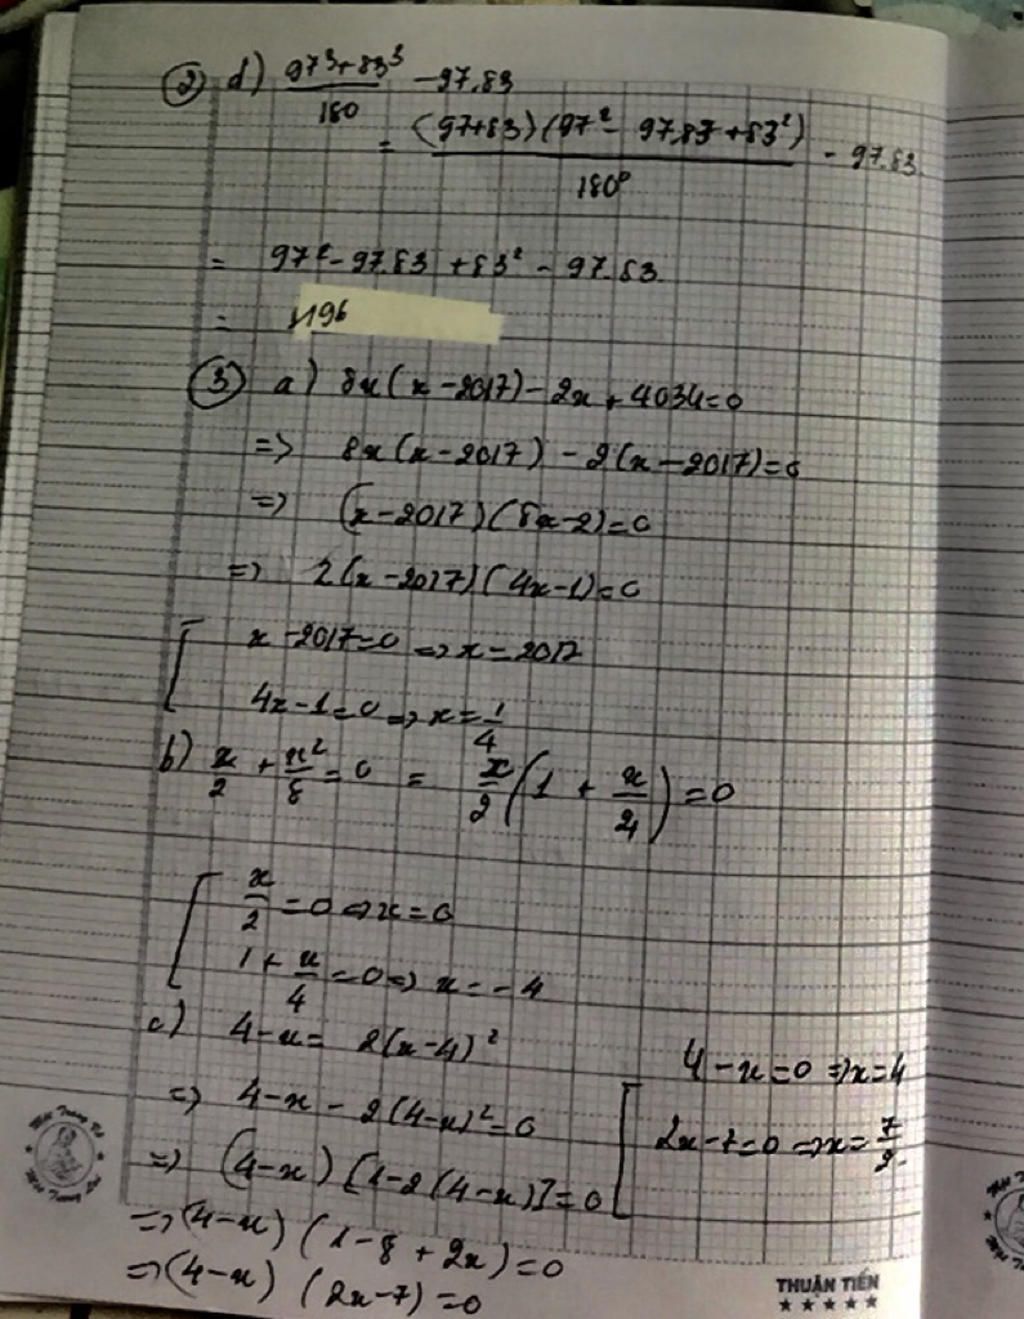 ② d) 97³+83³/180 - 97.83
= (97+83)(97² - 97.83 + 83²)/180 - 97.83
= 97² - 97.83 + 83² - 97.83
= 196
③ a) 8x(x-2017) - 2x + 4034=0
=> 8x(x-2017) - 2(x-2017)=0
=> (x-2017)(8x-2)=0
=> 2(x-2017)(4x-1)=0
[ x-2017=0 => x=2017
4x-1=0 => x=1/4
b) x/2 + x²/8 = 0 = x/2(1 + x/4) = 0
[ x/2 = 0 => x=0
1 + x/4 = 0 => x=-4
c) 4-x = 2(x-4)²
=> 4-x - 2(4-x)²=0
=> (4-x)[1-2(4-x)]=0
=> (4-x)(1-8+2x)=0
=> (4-x)(2x-7)=0
[ 4-x=0 => x=4
2x-7=0 => x=7/2
THUẬN TIẾN